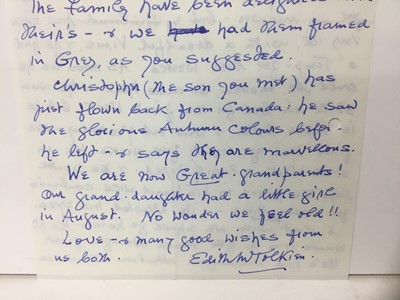 The family have been delighted with
Their's - & we had them framed
in Grey, as you suggested.
Christopher (the son you met) has
just flown back from Canada: he saw
the glorious Autumn colours before
he left - & says they are marvellous.
We are now Great-grandparents!
Our grand-daughter had a little girl
in August. No wonder we feel old!!
Love - & many good wishes from
us both. Edith M Tolkien.